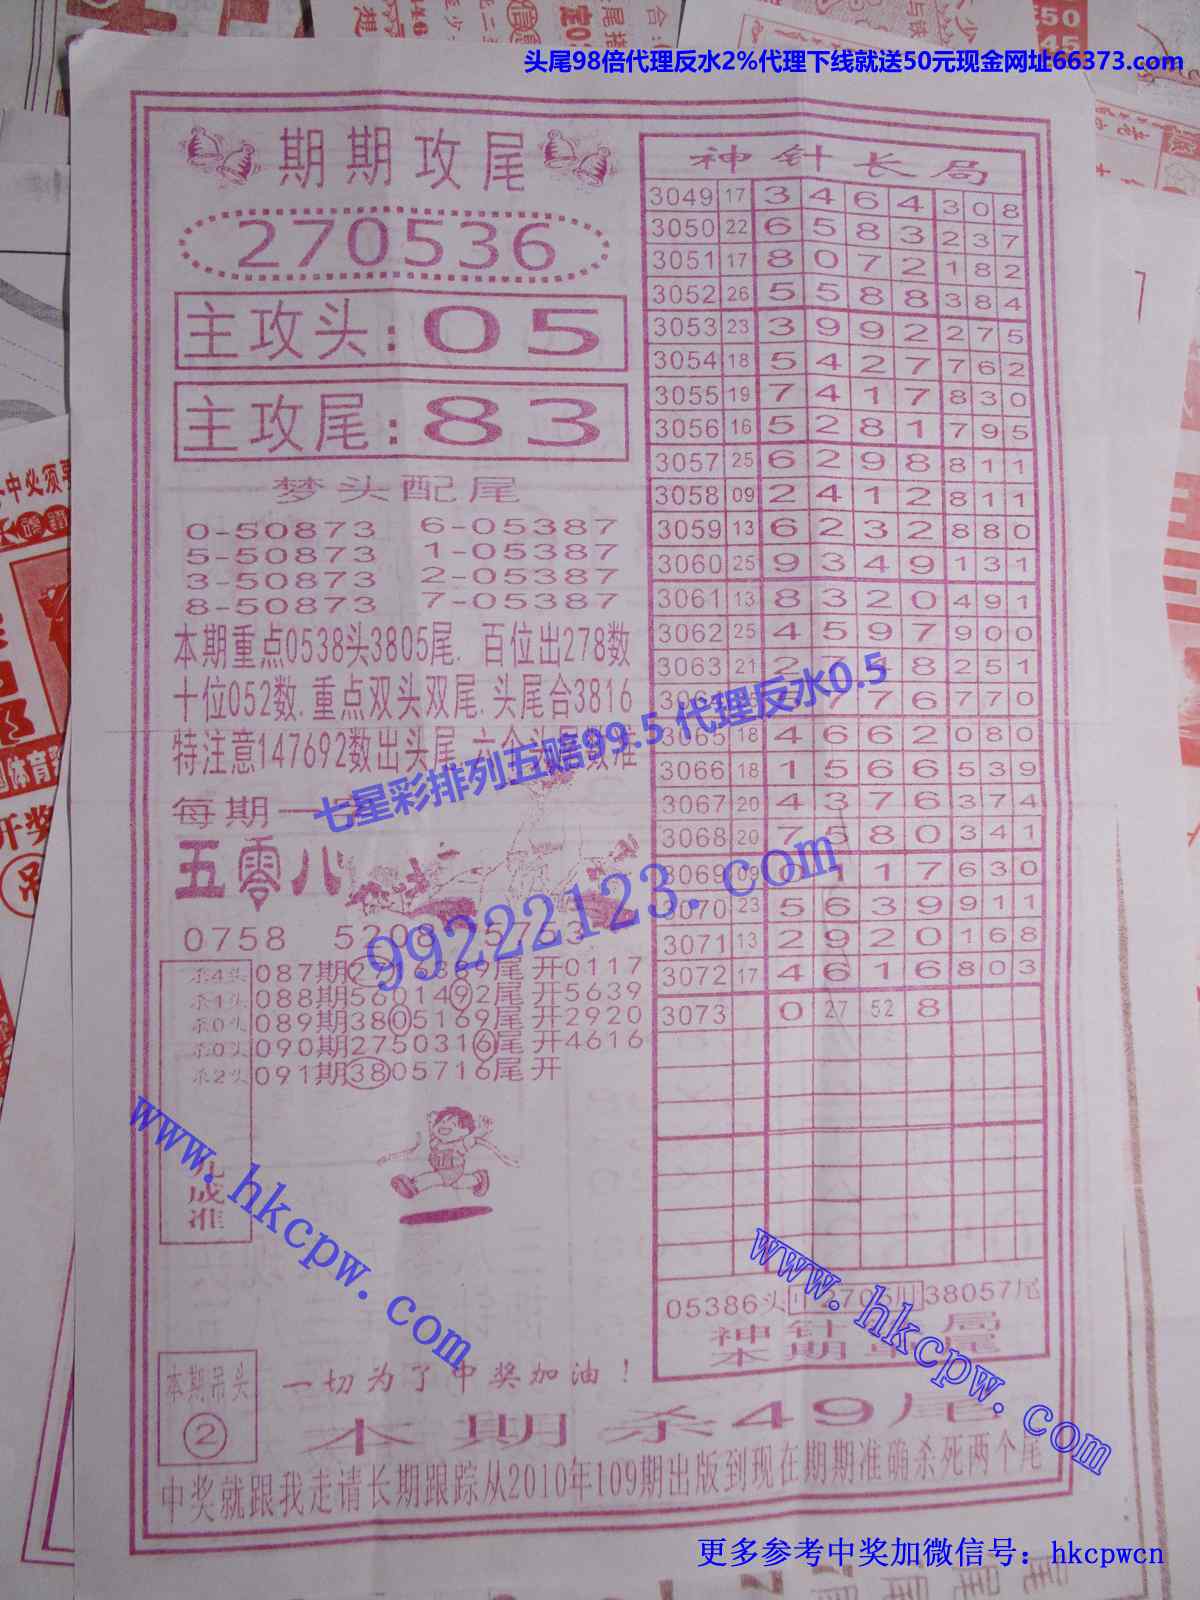 头尾98倍代理反水2%代理下线就送50元现金网址66373.com
期期攻尾
270536
主攻头:05
主攻尾:83
梦头配尾
0-50873 6-05387
5-50873 1-05387
3-50873 2-05387
8-50873 7-05387
本期重点0538头3805尾. 百位出278数
十位052数.重点双头双尾.头尾合3816
特注意147692数出头尾.
七星彩排列五赔99.5 代理反水0.5
每期一
五零八
0758 5208
99222123.com
杀4头 087期 尾 开0117
杀1头 088期5601492尾 开5639
杀0头 089期3805169尾 开2920
杀0头 090期2750316尾 开4616
杀2头 091期3805716尾 开
成准
www.hkcpw.com
本期吊头
②
一切为了中奖加油！
神针长局
3049 17 3 4 6 4 3 0 8
3050 22 6 5 8 3 2 3 7
3051 17 8 0 7 2 1 8 2
3052 26 5 5 8 8 3 8 4
3053 23 3 9 9 2 2 7 5
3054 18 5 4 2 7 7 6 2
3055 19 7 4 1 7 8 3 0
3056 16 5 2 8 1 7 9 5
3057 25 6 2 9 8 8 1 1
3058 09 2 4 1 2 8 1 1
3059 13 6 2 3 2 8 8 0
3060 25 9 3 4 9 1 3 1
3061 13 8 3 2 0 4 9 1
3062 25 4 5 9 7 9 0 0
3063 21 2 7 4 8 2 5 1
7 7 6 7 7 0
3065 18 4 6 6 2 0 8 0
3066 18 1 5 6 6 5 3 9
3067 20 4 3 7 6 3 7 4
3068 20 7 5 8 0 3 4 1
3069 09 0 1 1 7 6 3 0
3070 23 5 6 3 9 9 1 1
3071 13 2 9 2 0 1 6 8
3072 17 4 6 1 6 8 0 3
3073 0 27 52 8
05386头 38057尾
神针 局
本期 尾
www.hkcpw.com
本期杀49尾
中奖就跟我走请长期跟踪从2010年109期出版到现在期期准确杀死两个尾
更多参考中奖加微信号：hkcpwcn